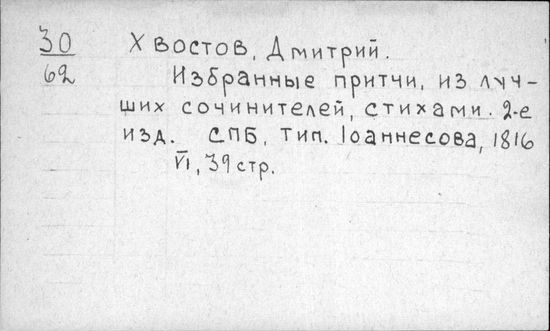 30 Хвостов, Дмитрий.
62 Избранные притчи, из луч-
ших сочинителей, стихами. 2-е
изд. СПБ, тип. Iоаннесова, 1816
VI, 39 стр.